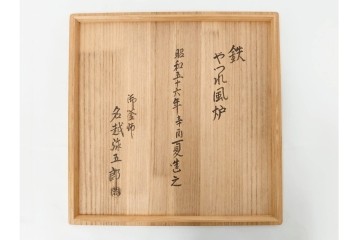 鉄
やつれ風炉
昭和五十六年辛酉夏造之
御釜師
名越弥五郎